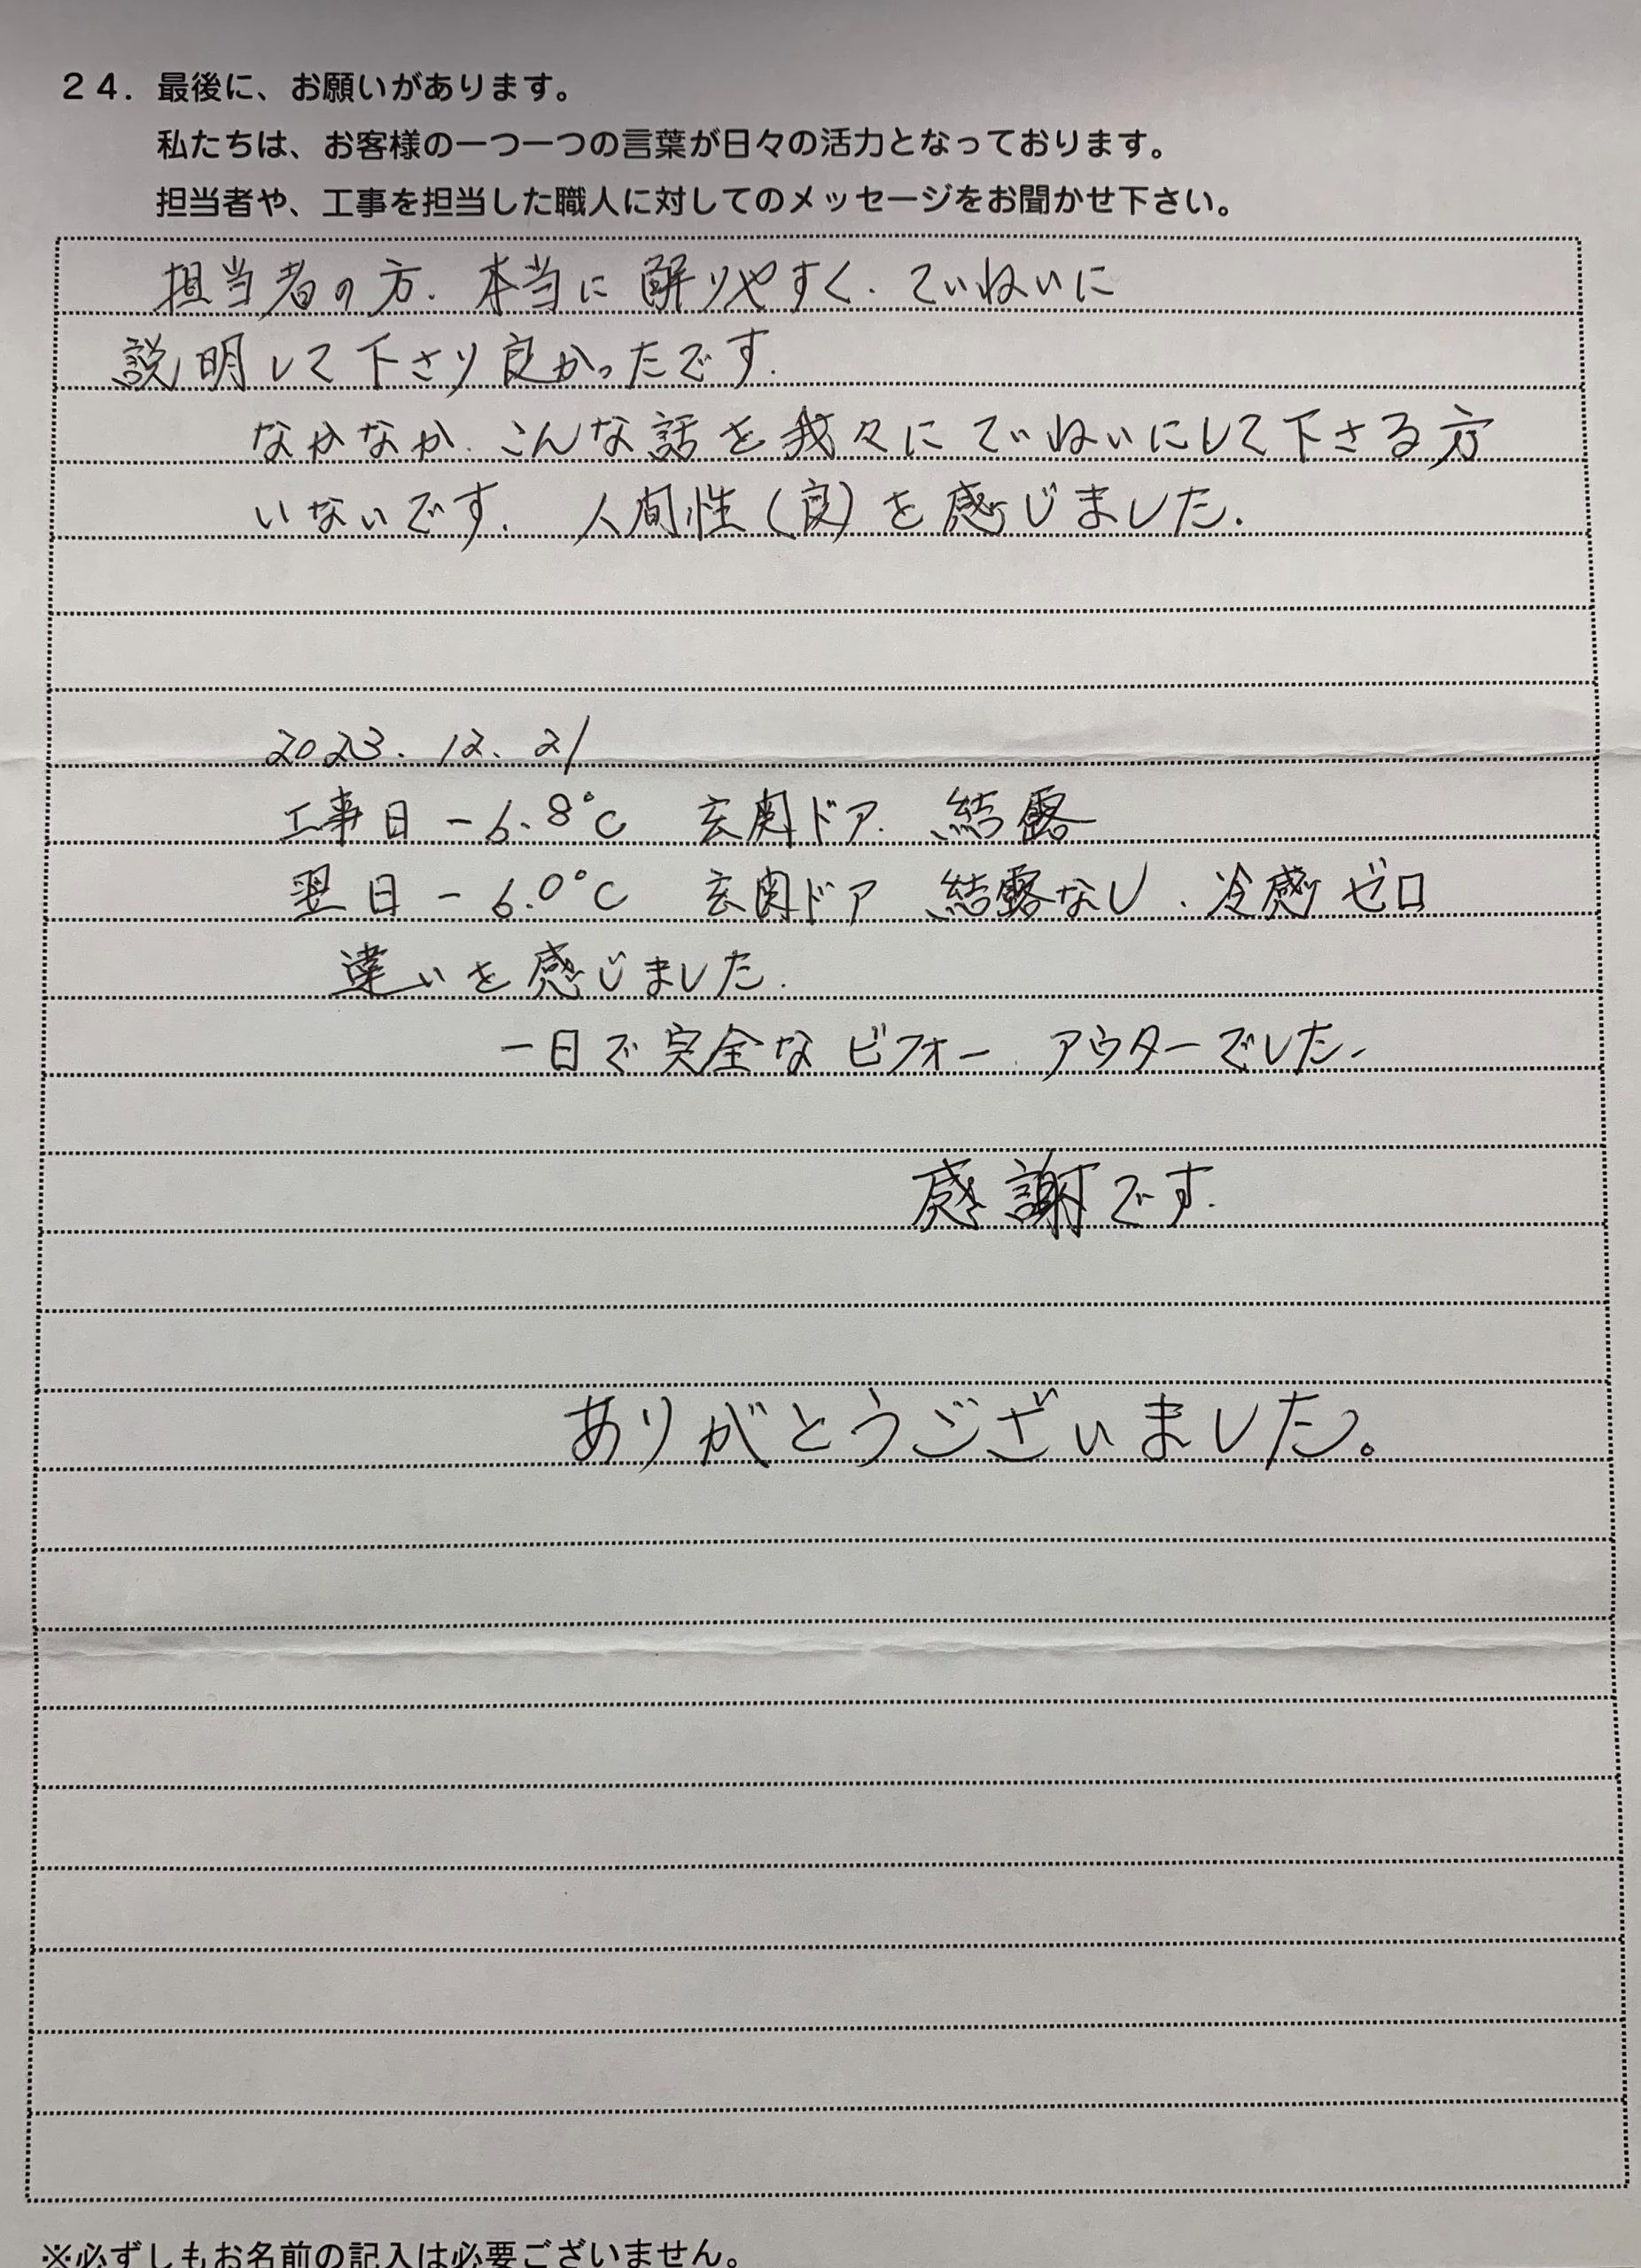 ２４．最後に、お願いがあります。
私たちは、お客様の一つ一つの言葉が日々の活力となっております。
担当者や、工事を担当した職人に対してのメッセージをお聞かせ下さい。
担当者の方、本当に解りやすく、ていねいに
説明して下さり良かったです。
なかなか、こんな話を我々にていねいにして下さる方
いないです。人間性（良）を感じました。
2023.12.21
工事日 -6.8℃ 玄関ドア、結露
翌日 -6.0℃ 玄関ドア 結露なし、冷感ゼロ
違いを感じました。
一日で完全なビフォー、アウターでした。
感謝です。
ありがとうございました。
※必ずしもお名前の記入は必要ございません。